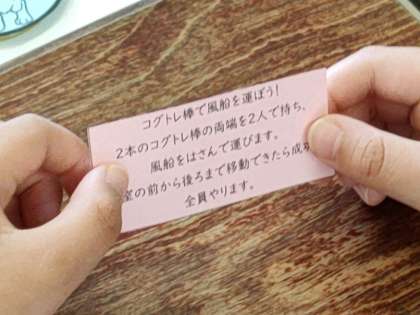 コグトレ棒で風船を運ぼう!
2本のコグトレ棒の両端を2人で持ち、
風船をはさんで運びます。
室の前から後ろまで移動できたら成
全員やります。